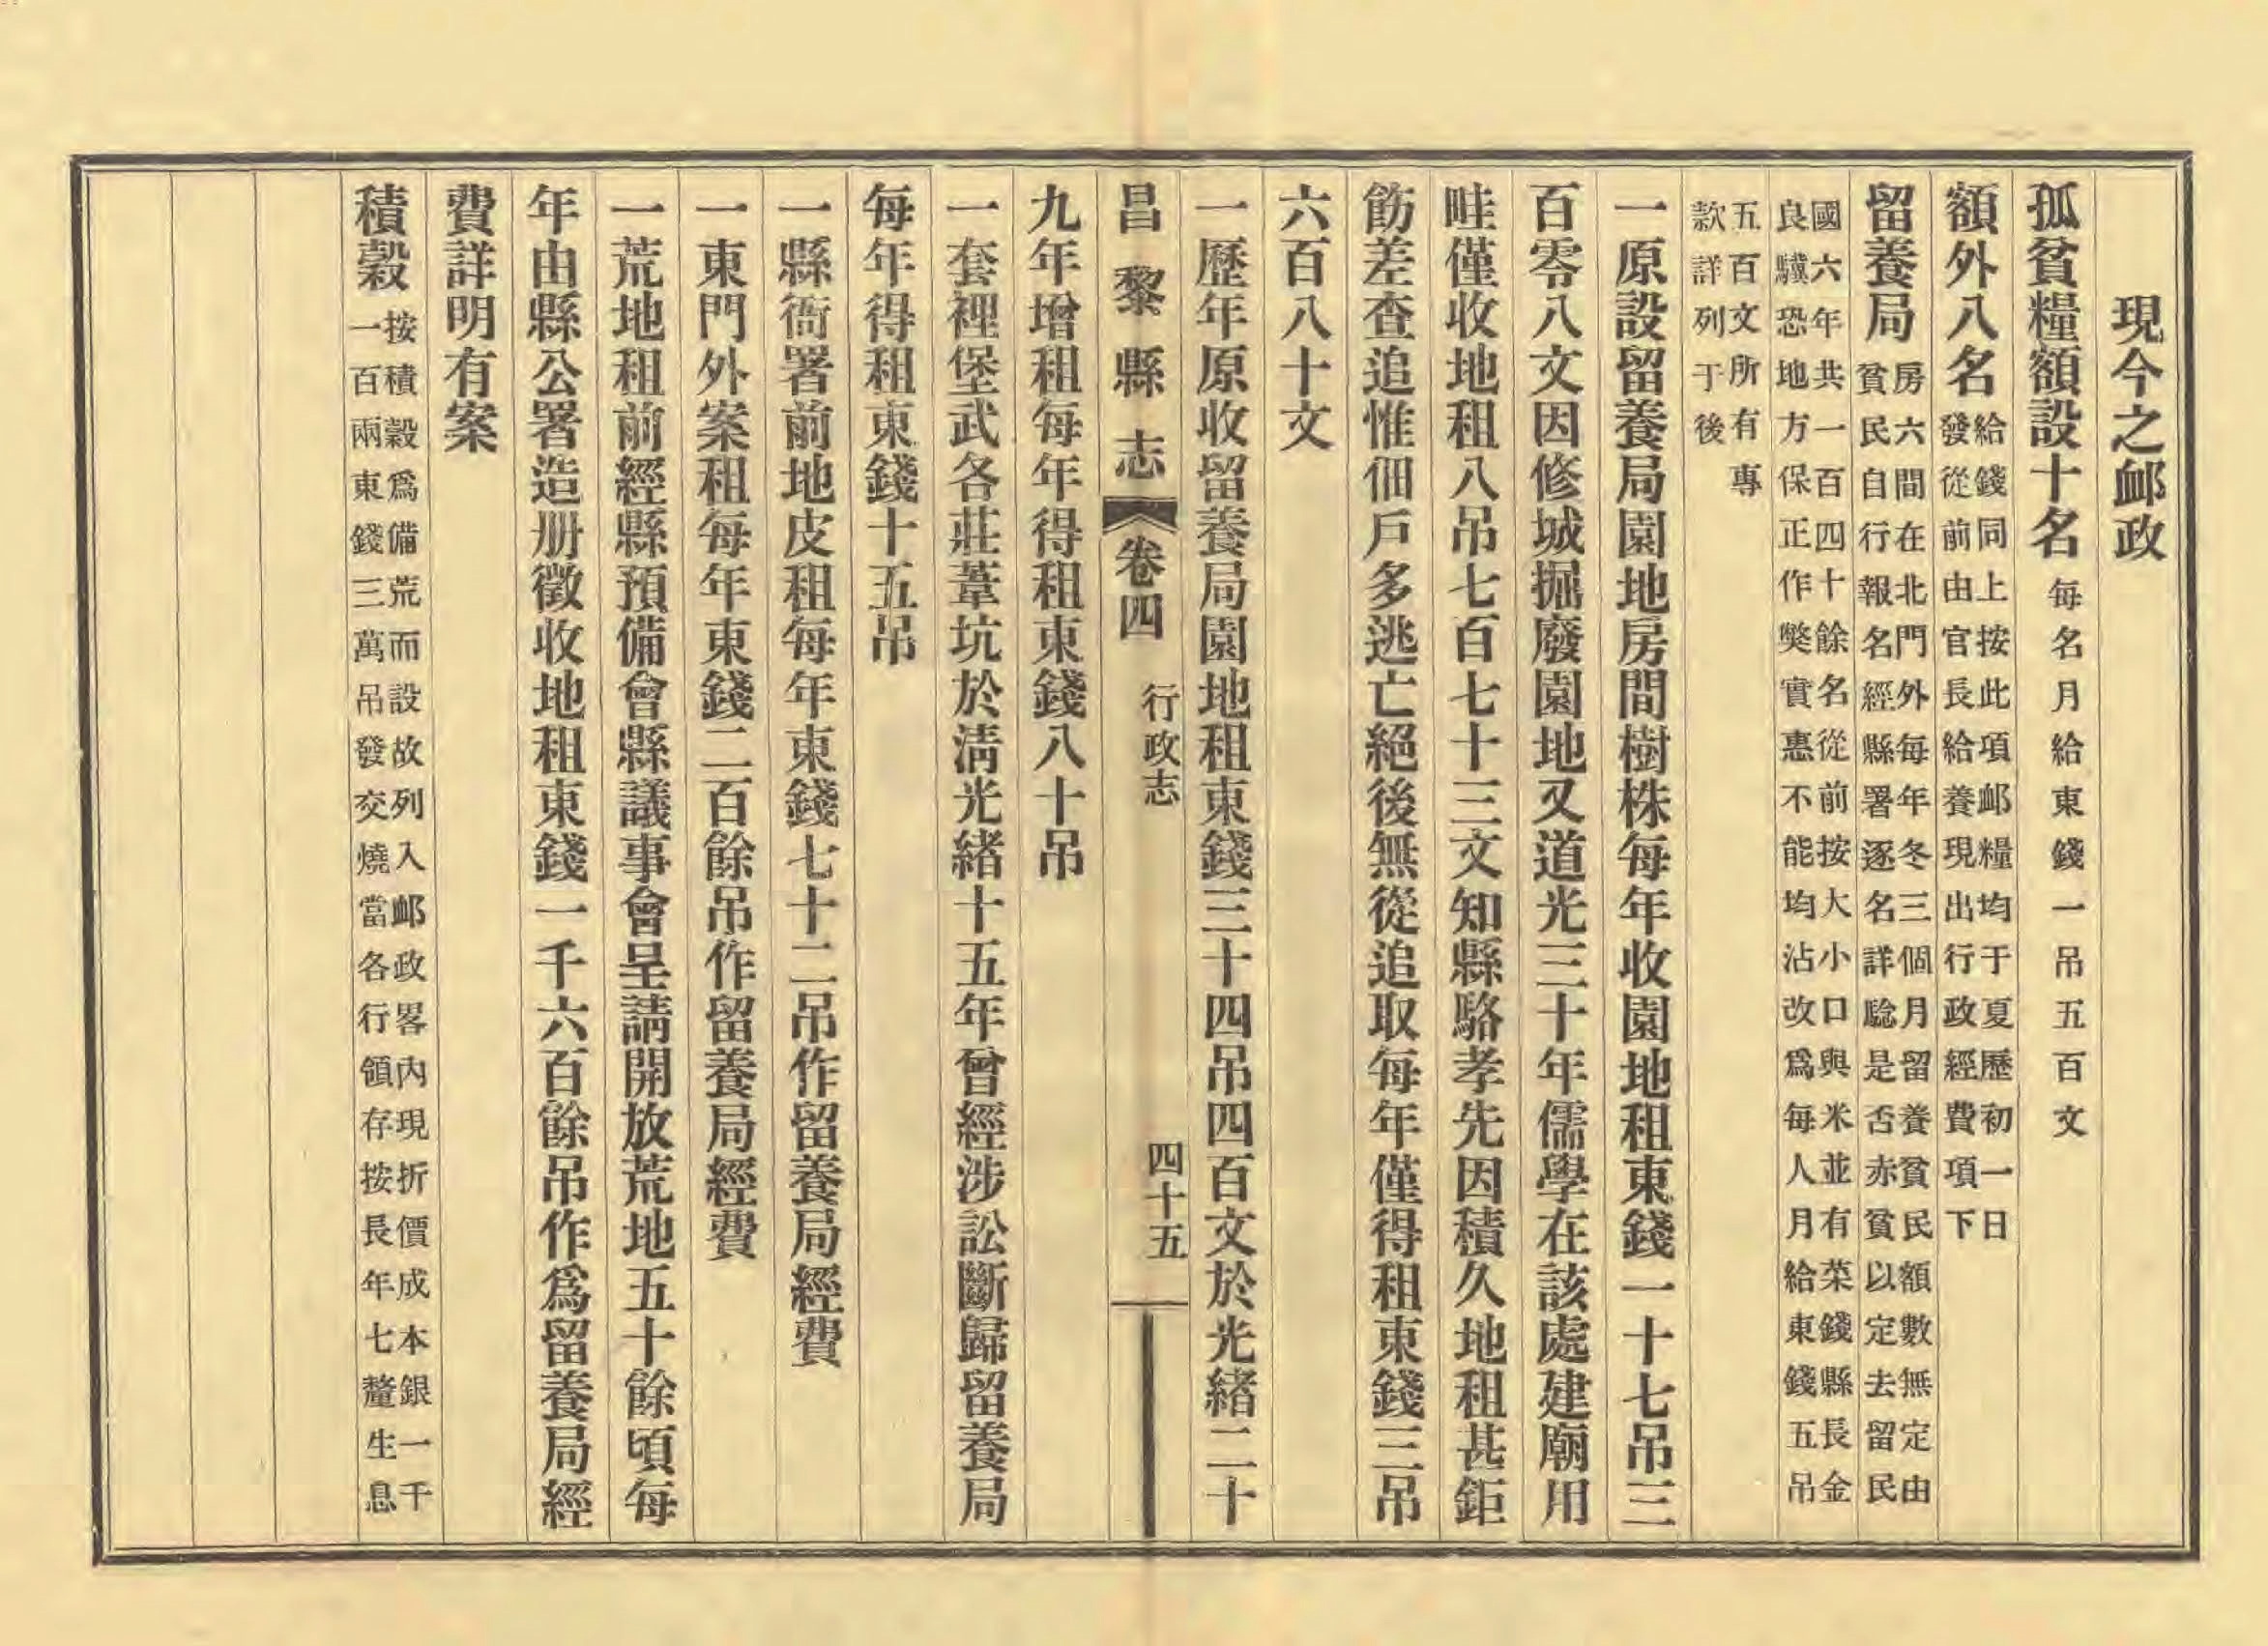 現今之䘏政
孤貧糧額設十名每名月給東錢一吊五百文
額外八名給錢同上按此項䘏糧均于夏歷初一日
發從前由官長給養現出行政經費項下
留養局房六間在北門外每年冬三個月留養貧民額數無定由
貧民自行報名經縣署逐名詳騐是否赤貧以定去留民
國六年共一百四十餘名從前按大小口與米並有菜錢縣長金
良驥恐地方保正作獘實惠不能均沾改爲每人月給東錢五吊
五百文所有專
款詳列于後
一原設留養局園地房間樹株每年收園地租東錢一十七吊三
百零八文因修城掘廢園地又道光三十年儒學在該處建廟用
畦僅收地租八吊七百七十三文知縣駱孝先因積久地租甚鉅
飭差查追惟佃戶多逃亡絕後無從追取每年僅得租東錢三吊
六百八十文
一歷年原收留養局園地租東錢三十四吊四百文於光緒二十
昌黎縣志 卷四 行政志 四十五
九年增租每年得租東錢八十吊
一套裡堡武各莊葦坑於淸光緒十五年曾經涉訟斷歸留養局
每年得租東錢十五吊
一縣衙署前地皮租每年東錢七十二吊作留養局經費
一東門外案租每年東錢二百餘吊作留養局經費
一荒地租前經縣預備會縣議事會呈請開放荒地五十餘頃每
年由縣公署造册徵收地租東錢一千六百餘吊作爲留養局經
費詳明有案
積穀按積穀爲備荒而設故列入䘏政畧內現折價成本銀一千
一百兩東錢三萬吊發交燒當各行領存按長年七釐生息